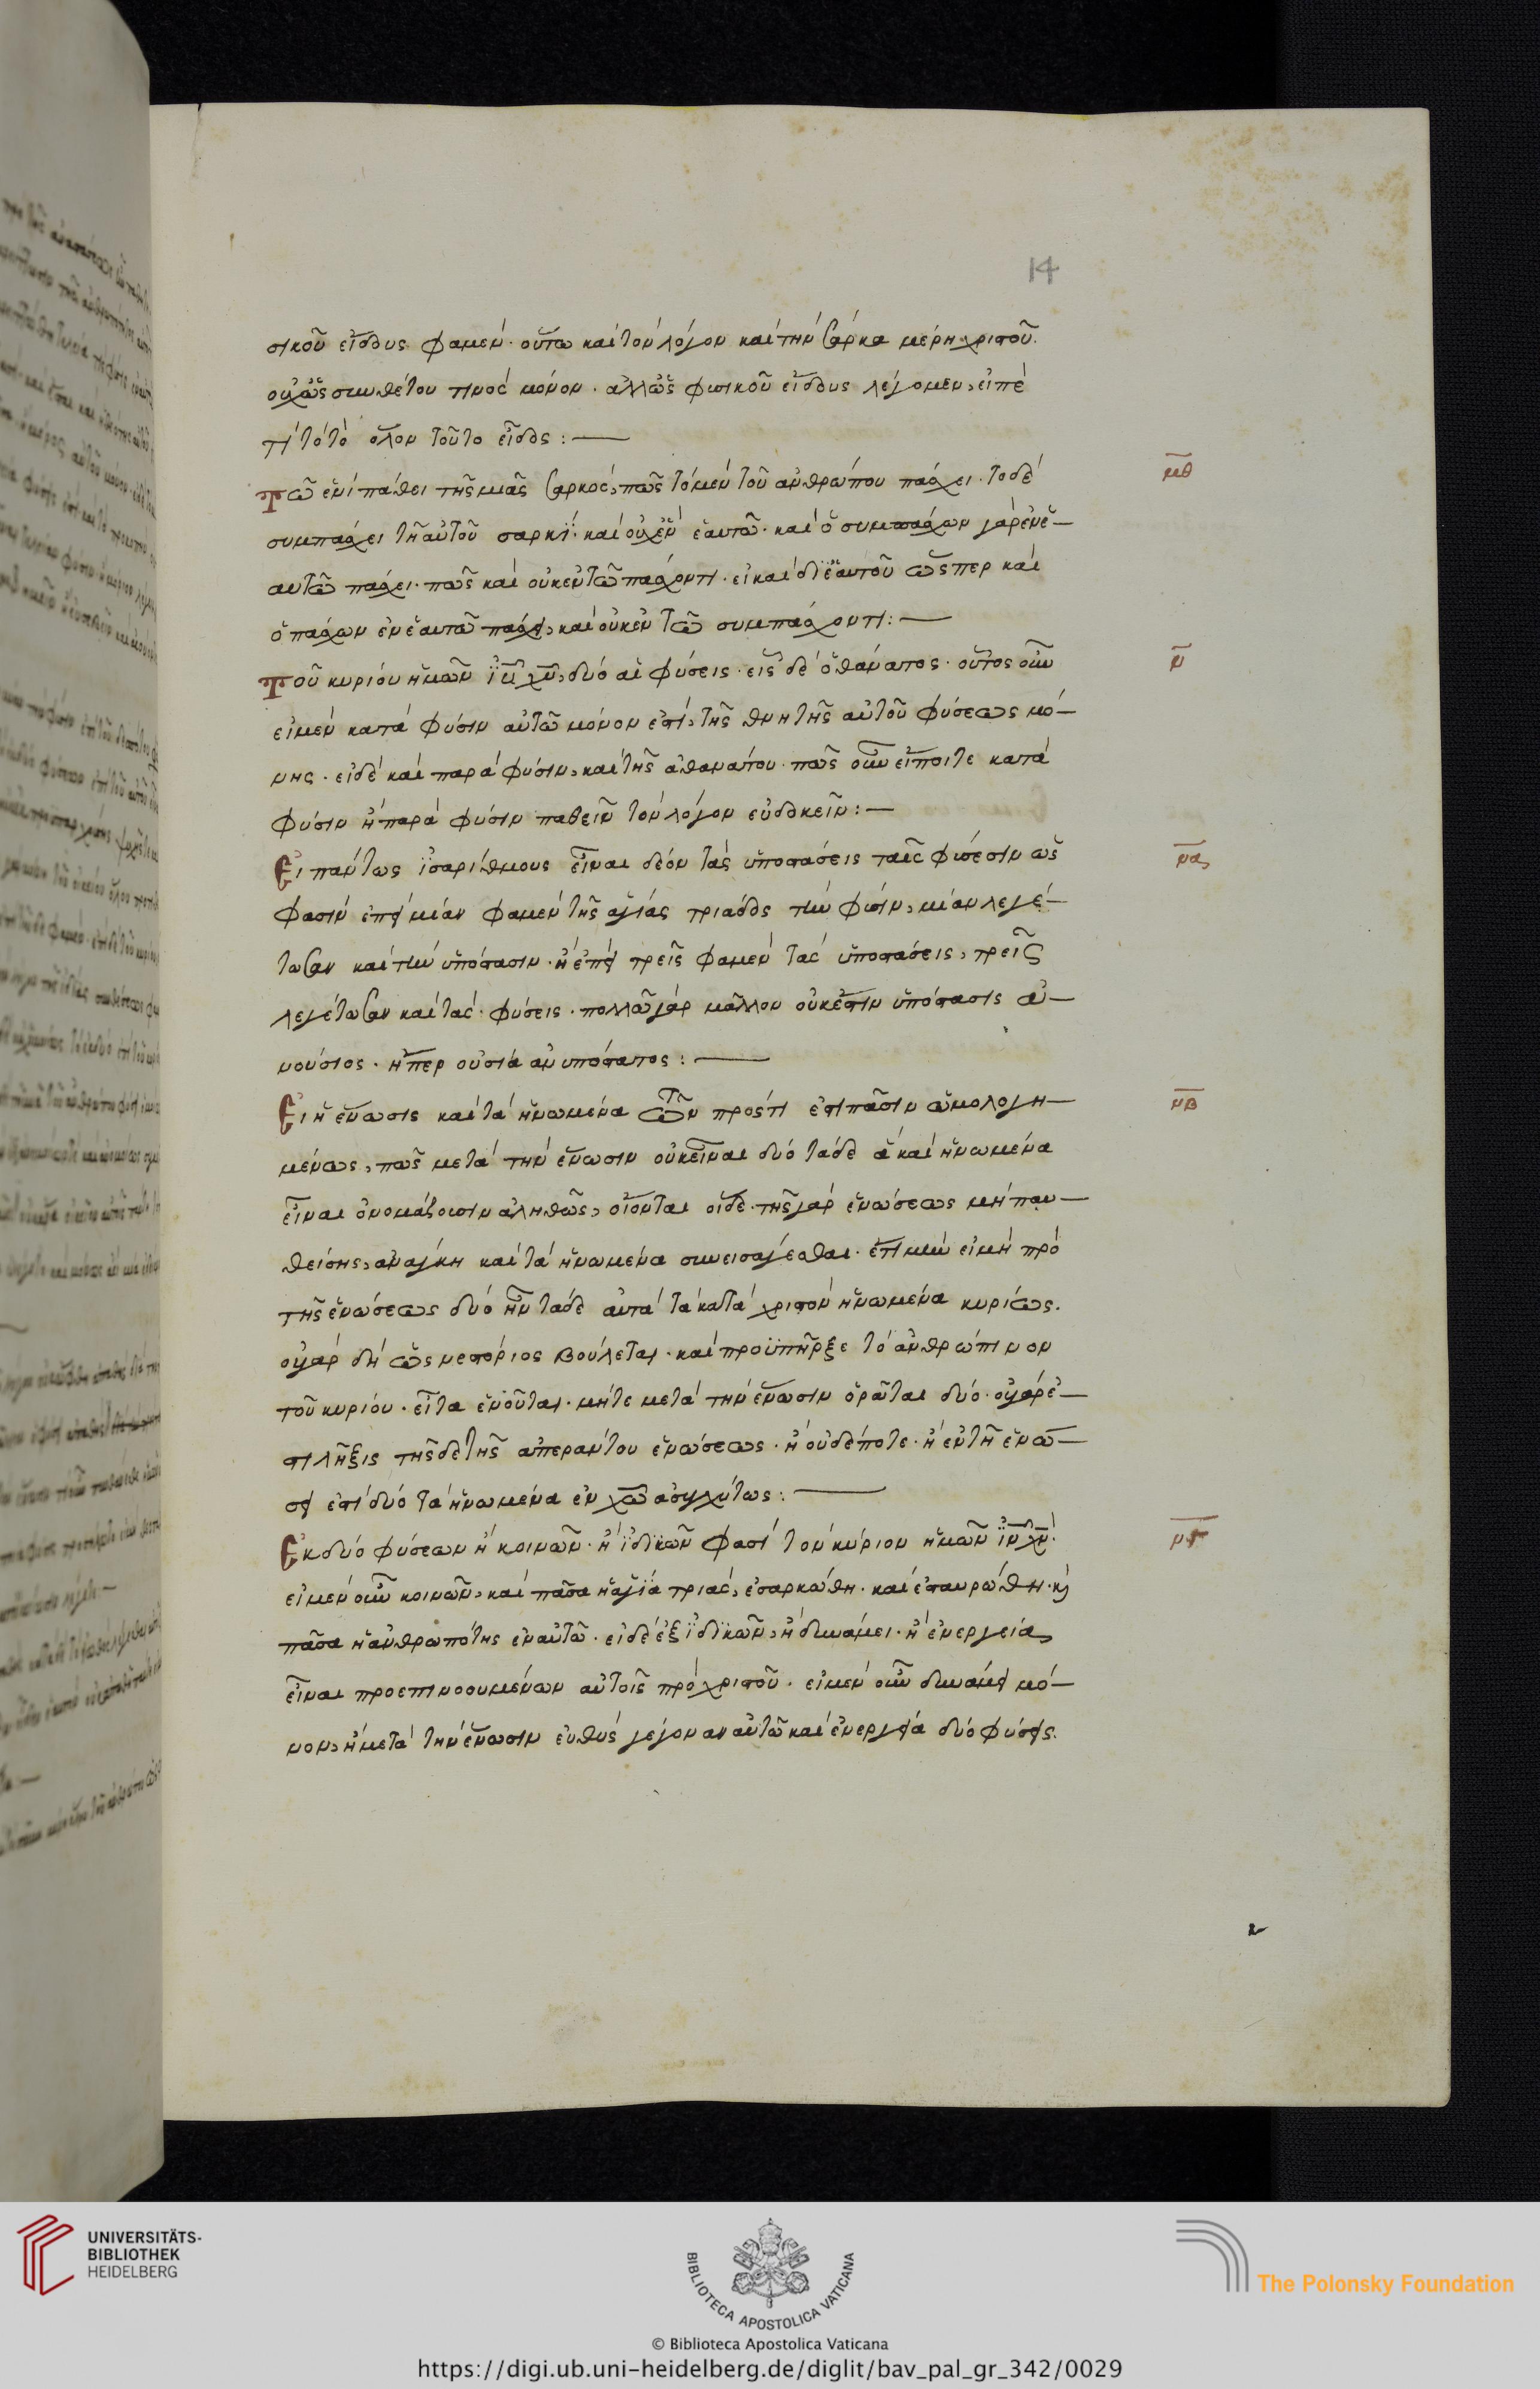 14
σικοῦ εἴδους φαμέν· οὕτω καὶ τὸν λόγον καὶ τὴν σάρκα μέρη χριστοῦ.
οὐχ ὡς συνθέτου τινὸς μόνον· ἀλλ' ὡς φυσικοῦ εἴδους λέγομεν, εἰπὲ
τί τὸ τὸ ὅλον τοῦτο εἶδος:—
μθ
Τῶ ἑνὶ πάθει τῆς μιᾶς σαρκός, πῶς τὸ μὲν τοῦ ἀνθρώπου πάσχει· τὸ δὲ
συμπάσχει τῆ αὐτοῦ σαρκΐ· καὶ οὐχ ἓν ἑαυτῶ· καὶ ὁ συμπάσχων γὰρ ἐν ἑ—
αυτῶ πάσχει· πῶς καὶ οὐκ ἐν τῶ πάσχοντι· εἰ καὶ δι' ἑαυτοῦ ὥσπερ καὶ
ὁ πάσχων ἐν ἑαυτῶ πάσχει, καὶ οὐκ ἐν τῶ συμπάσχοντι:—
ν
Τοῦ κυρίου ἡμῶν ϊῦ χῦ, δύο αἱ φύσεις· εἷς δὲ ὁ θάνατος· οὗτος οὖν
εἰ μὲν κατὰ φύσιν αὐτῶ μόνον ἐστί, τῆς θνητῆς αὐτοῦ φύσεως μό—
νης· εἰ δὲ καὶ παρὰ φύσιν, καὶ τῆς ἀθανάτου· πῶς οὖν εἴποιτε κατὰ
φύσιν ἢ παρὰ φύσιν παθεῖν τὸν λόγον εὐδοκεῖν:—
να
Εἰ πάντως ϊσαρίθμους εἶναι δέον τὰς ὑποστάσεις ταῖς φύσεσιν ὥς
φασιν ἐπεὶ μίαν φαμὲν τῆς ἁγίας τριάδος τὴν φύσιν, μίαν λεγέ—
τωσαν καὶ τὴν ὑπόστασιν· ἢ ἐπεὶ τρεῖς φαμὲν τὰς ὑποστάσεις, τρεῖς
λεγέτωσαν καὶ τὰς φύσεις· πολλῶ γὰρ μᾶλλον οὐκ ἔστιν ὑπόστασις ἀ—
νούσιος· ἤπερ οὐσία ἀνυπόστατος:—
νβ
Εἰ ἡ ἕνωσις καὶ τὰ ἡνωμένα τῶν πρός τί ἐστι πᾶσιν ὡμολογη—
μένως, πῶς μετὰ τὴν ἕνωσιν οὐκ εἶναι δύο τάδε ἃ καὶ ἡνωμένα
εἶναι ὀνομάζουσιν ἀληθῶς, οἴονται οἵδε· τῆς γὰρ ἑνώσεως μὴ παυ—
θείσης, ἀνάγκη καὶ τὰ ἡνωμένα συνεισάγεσθαι· ἔτι μὴν εἰ μὴ πρὸ
τῆς ἑνώσεως δύο ἦν τάδε αὐτὰ τὰ κατὰ χριστὸν ἡνωμένα κυρίως.
οὐ γὰρ δὴ ὡς νεστόριος βούλεται· καὶ προϋπῆρξε τὸ ἀνθρώπινον
τοῦ κυρίου· εἶτα ἑνοῦται· μήτε μετὰ τὴν ἕνωσιν ὁρᾶται δύο· οὐ γάρ ἐ—
στι λῆξις τῆσδε τῆς ἀπεράντου ἑνώσεως· ἢ οὐδέποτε· ἢ ἐν τῆ ἑνώ—
σει ἐστὶ δύο τὰ ἡνωμένα ἐν χῶ ἀσυγχύτως:—
νγ
Ἐκ δύο φύσεων ἢ κοινῶν· ἢ ϊδικῶν φασὶ τὸν κύριον ἡμῶν ϊν χν·
εἰ μὲν οὖν κοινῶν, καὶ πᾶσα ἡ ἁγία τριάς, ἐσαρκώθη· καὶ ἐσταυρώθη· κὶ
πᾶσα ἡ ἀνθρωπότης ἐν αὐτῶ· εἰ δὲ ἐξ ϊδϊκῶν, ἢ δυνάμει· ἢ ἐνεργεία,
εἶναι προεπινοουμένων αὐτοῖς πρὸ χριστοῦ· εἰ μὲν οὖν δυνάμει μό—
νον, ἢ μετὰ τὴν ἕνωσιν εὐθὺς γέγοναν αὐτῶ καὶ ἐνεργεία δύο φύσεις.
UNIVERSITÄTS-
BIBLIOTHEK
HEIDELBERG
BIBLIOTECA APOSTOLICA VATICANA
The Polonsky Foundation
© Biblioteca Apostolica Vaticana
https://digi.ub.uni-heidelberg.de/diglit/bav_pal_gr_342/0029